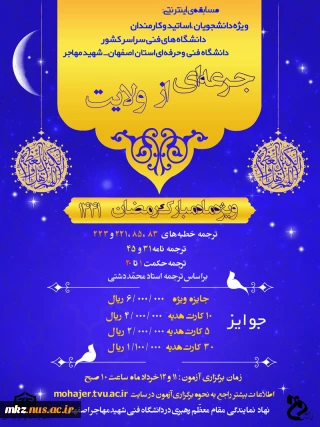 مسابقه‌ی اینترنتی:
ویژه دانشجویان، اساتید و کارمندان
دانشگاه های فنی سراسر کشور
دانشگاه فنی و حرفه‌ای استان اصفهان - شهید مهاجر
جرعه‌ای از ولایت
ویژه ماه مبارک رمضان ۱۴۴۱
ترجمه خطبه‌های ۸۳، ۸۵، ۲۲۱ و ۲۲۳
ترجمه نامه ۳۱ و ۴۵
ترجمه حکمت ۱ تا ۲۰
بر اساس ترجمه استاد محمد دشتی
جوایز
جایزه ویژه ۶/۰۰۰/۰۰۰ ریال
۱۰ کارت هدیه ۴/۰۰۰/۰۰۰ ریال
۵ کارت هدیه ۲/۰۰۰/۰۰۰ ریال
۳۰ کارت هدیه ۱/۱۰۰/۰۰۰ ریال
زمان برگزاری آزمون: ۱۱ و ۱۲ خرداد ماه ساعت ۱۰ صبح
اطلاعات بیشتر راجع به نحوه برگزاری آزمون در سایت mohajer.tvu.ac.ir
نهاد نمایندگی مقام معظّم رهبری در دانشگاه فنی شهید مهاجر
mkz.nus.ac.ir